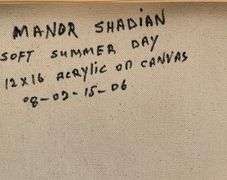 MANOR SHADIAN
SOFT SUMMER DAY
12X16 ACRYLIC ON CANVAS
08-02-15-06